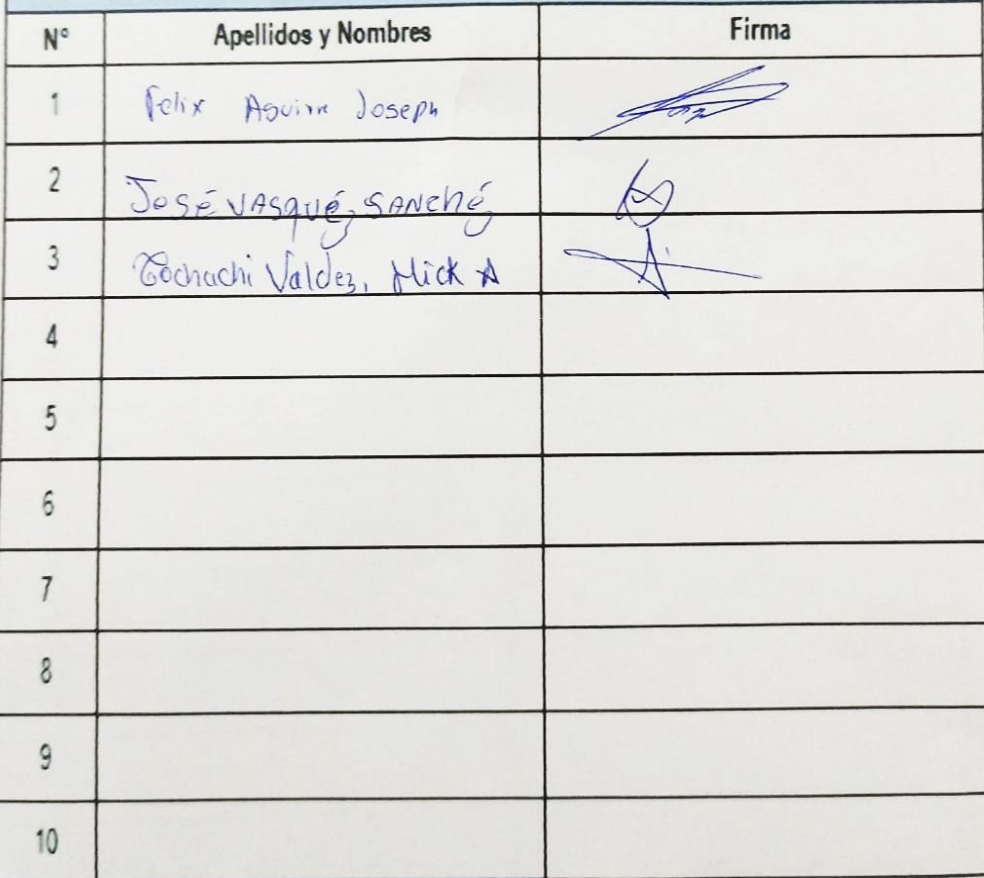 N° Apellidos y Nombres Firma
1 Felix Aguirre Joseph
2 José VAsquéz SANchéz
3 Cochachi Valdez, Mick A
4
5
6
7
8
9
10